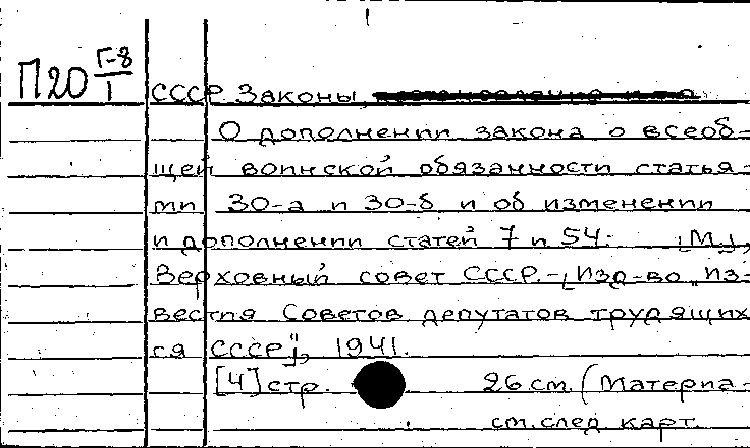 П20 Г-8/1
СССР Законы,
О дополнении закона о всеоб-
щей воинской обязанности статья-
ми 30-а и 30-б и об изменении
и дополнении статей 7 и 54. [М.],
Верховный совет СССР.-[Изд-во "Из-
вестия Советов депутатов трудящих
ся СССР"], 1941.
[4] стр. 26 см. (Материа-
см. след. карт.